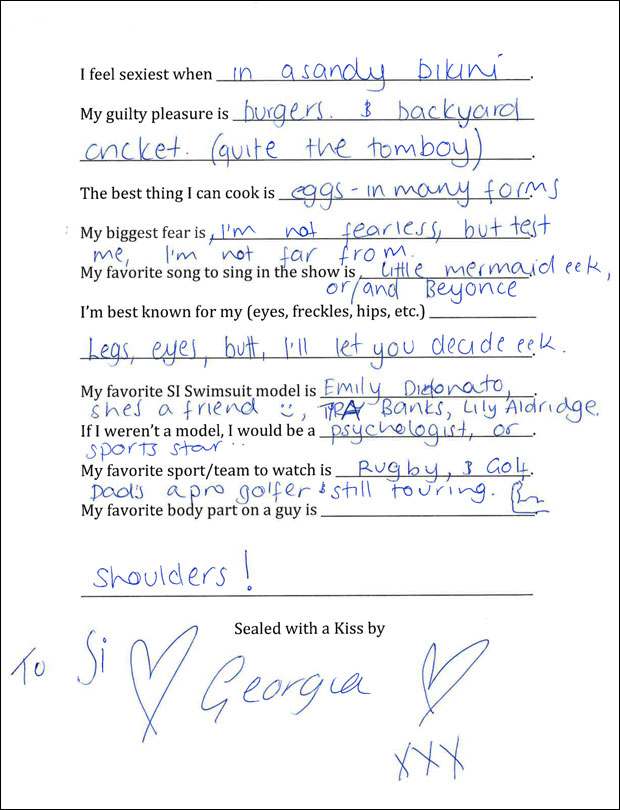 I feel sexiest when in a sandy bikini.
My guilty pleasure is burgers. & backyard
cricket. (quite the tomboy).
The best thing I can cook is eggs - in many forms
My biggest fear is, I'm not fearless, but test
me, I'm not far from.
My favorite song to sing in the show is Little mermaid eek,
or/and Beyonce
I'm best known for my (eyes, freckles, hips, etc.)
Legs, eyes, butt, I'll let you decide eek.
My favorite SI Swimsuit model is Emily Didonato,
she's a friend :), TYRA Banks, Lily Aldridge.
If I weren't a model, I would be a psychologist, or.
sports star..
My favorite sport/team to watch is Rugby, & Golf.
Dad's a pro golfer & still touring.
My favorite body part on a guy is
shoulders!
Sealed with a Kiss by
To Si Georgia
xxx